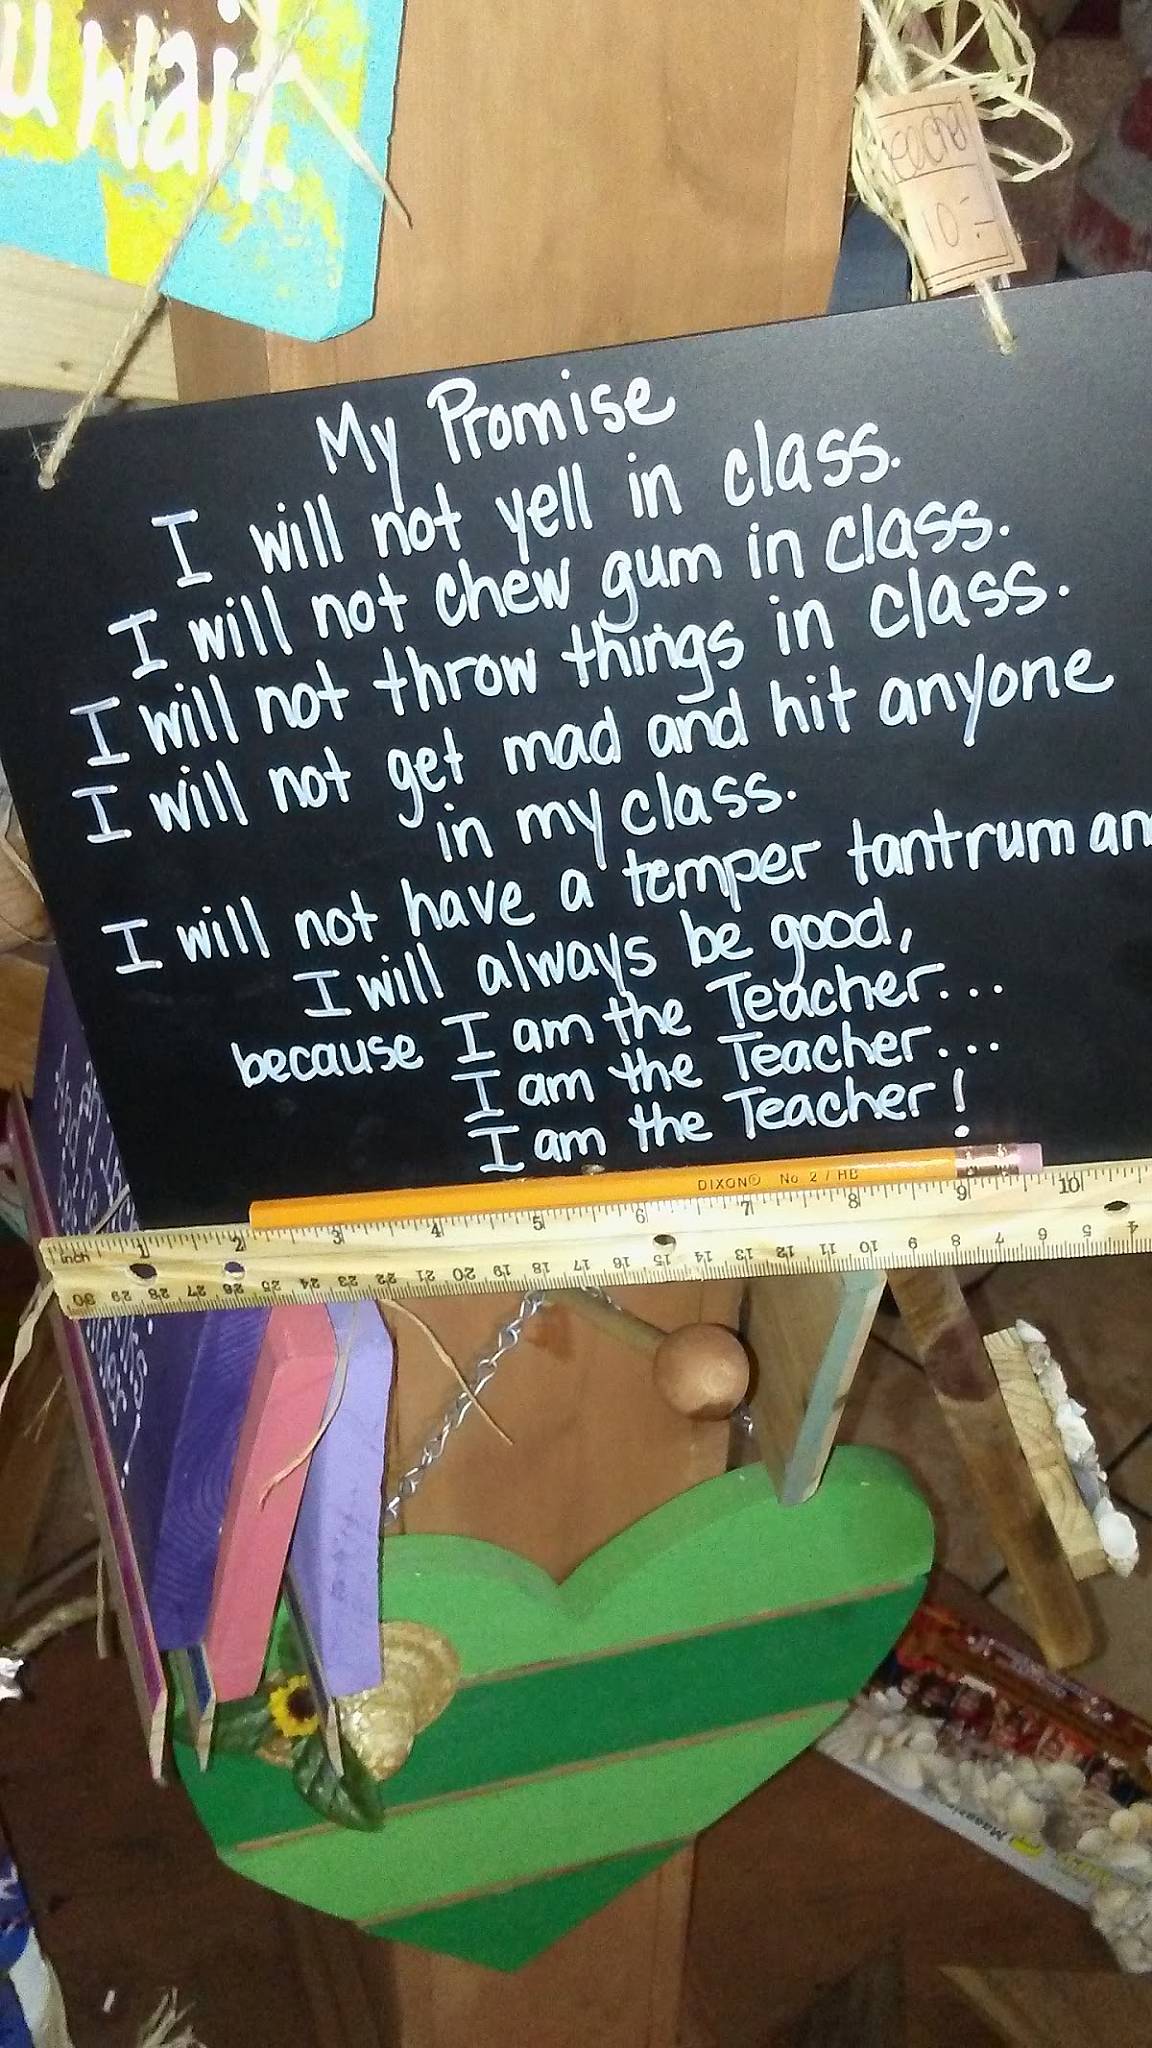 u wait.
teacher
10.-
My Promise
I will not yell in class.
I will not chew gum in class.
I will not throw things in class.
I will not get mad and hit anyone
in my class.
I will not have a temper tantrum an
I will always be good,
because I am the Teacher...
I am the Teacher...
I am the Teacher!
DIXON® No 2 / HB
inch 1 2 3 4 5 6 7 8 9 10
30 29 28 27 26 25 24 23 22 21 20 19 18 17 16 15 14 13 12 11 10 9 8 7 6 5 4